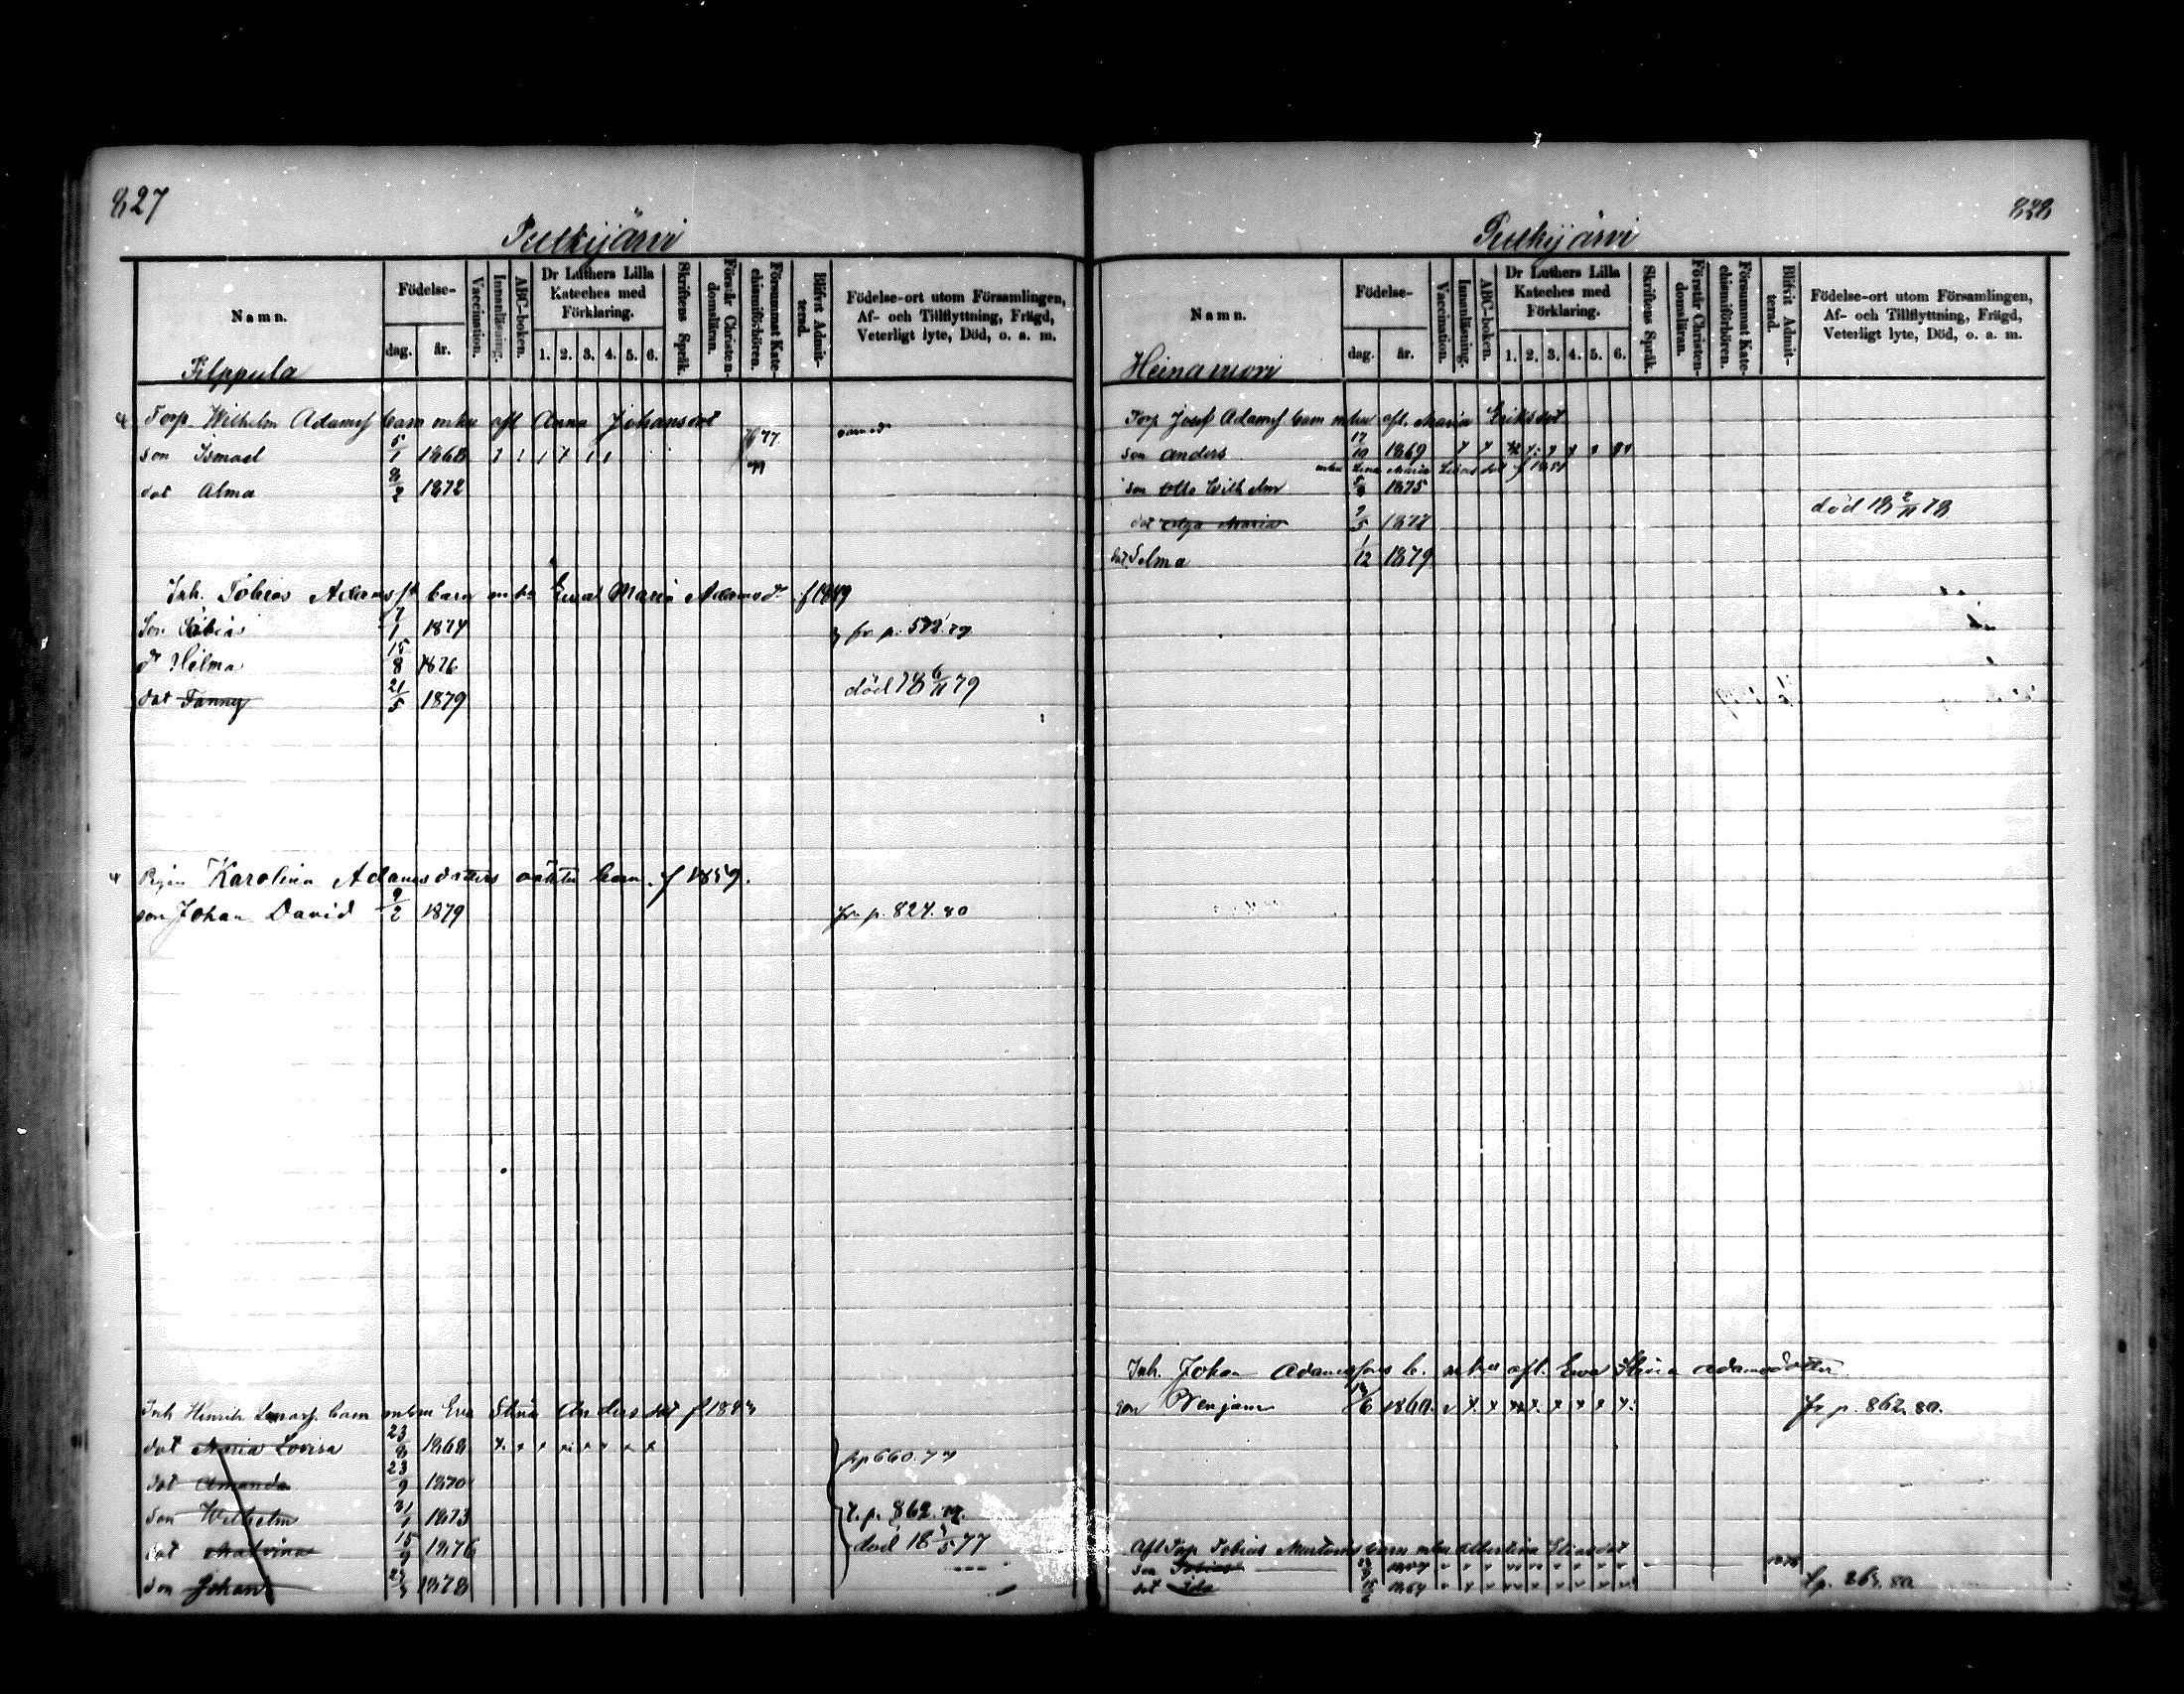 827
Pulkijärvi
Namn.
Födelse-
dag.
år.
Vaccination.
Innanläsning.
ABC-boken.
Dr Luthers Lilla Kateches med Förklaring.
1. 2. 3. 4. 5. 6.
Skriftens Språk.
Förstår Christendomsläran.
Försummat Katechismiförhören.
Blifvit Admitterad.
Födelse-ort utom Församlingen,
Af- och Tillflyttning, Frägd,
Veterligt lyte, Död, o. a. m.
Filppula
Torp Wilhelm Adamsf barn mhu afl Anna Johansdot
son Ismael 5/1 1868 77
dot Alma 8/2 1872
Inh. Tobias Adams barn Ewa Maria Adamsd. f 1849
Son Tobias 7/1 1874 fr p. 572. 79
d Hilma 15/8 1876
dot Fanny 21/5 1879 död 18 6/11 79
Pigan Karolina Adamsdotters oäkta barn. f 1859.
son Johan David 9/2 1879 fr. p. 824. 80
Inh Henrik barn mhu Eva Stina Andersdot
dot Maria Lovisa 23/8 1868 660.
dot Amanda 23/9 1870
son Wilhelm 31/1 1873 p. 862.
dot Malvina 15/9 1876 död 18 /5 77
son Johan 1878
828
Pulkijärvi
Namn.
Födelse-
dag.
år.
Vaccination.
Innanläsning.
ABC-boken.
Dr Luthers Lilla Kateches med Förklaring.
1. 2. 3. 4. 5. 6.
Skriftens Språk.
Förstår Christendomsläran.
Försummat Katechismiförhören.
Blifvit Admitterad.
Födelse-ort utom Församlingen,
Af- och Tillflyttning, Frägd,
Veterligt lyte, Död, o. a. m.
Heinamori
Torp Josef Adamsf barn mhu afl. Maria Eriksdot
son Anders 17/10 1869
mhu Lena Maria
son Otto Wilhelm 1875
dot Olga Maria 9/5 1877 död 18 2/11 78
dot Selma 1/12 1879
Inh. Johan Adamssons b. afl. Ewa Stina Adamsdotter
son Benjam fr p. 862. 80.
Afl Torp Tobias barn mhu Albertina Eliasdot
son Tobias
dot Ida 80